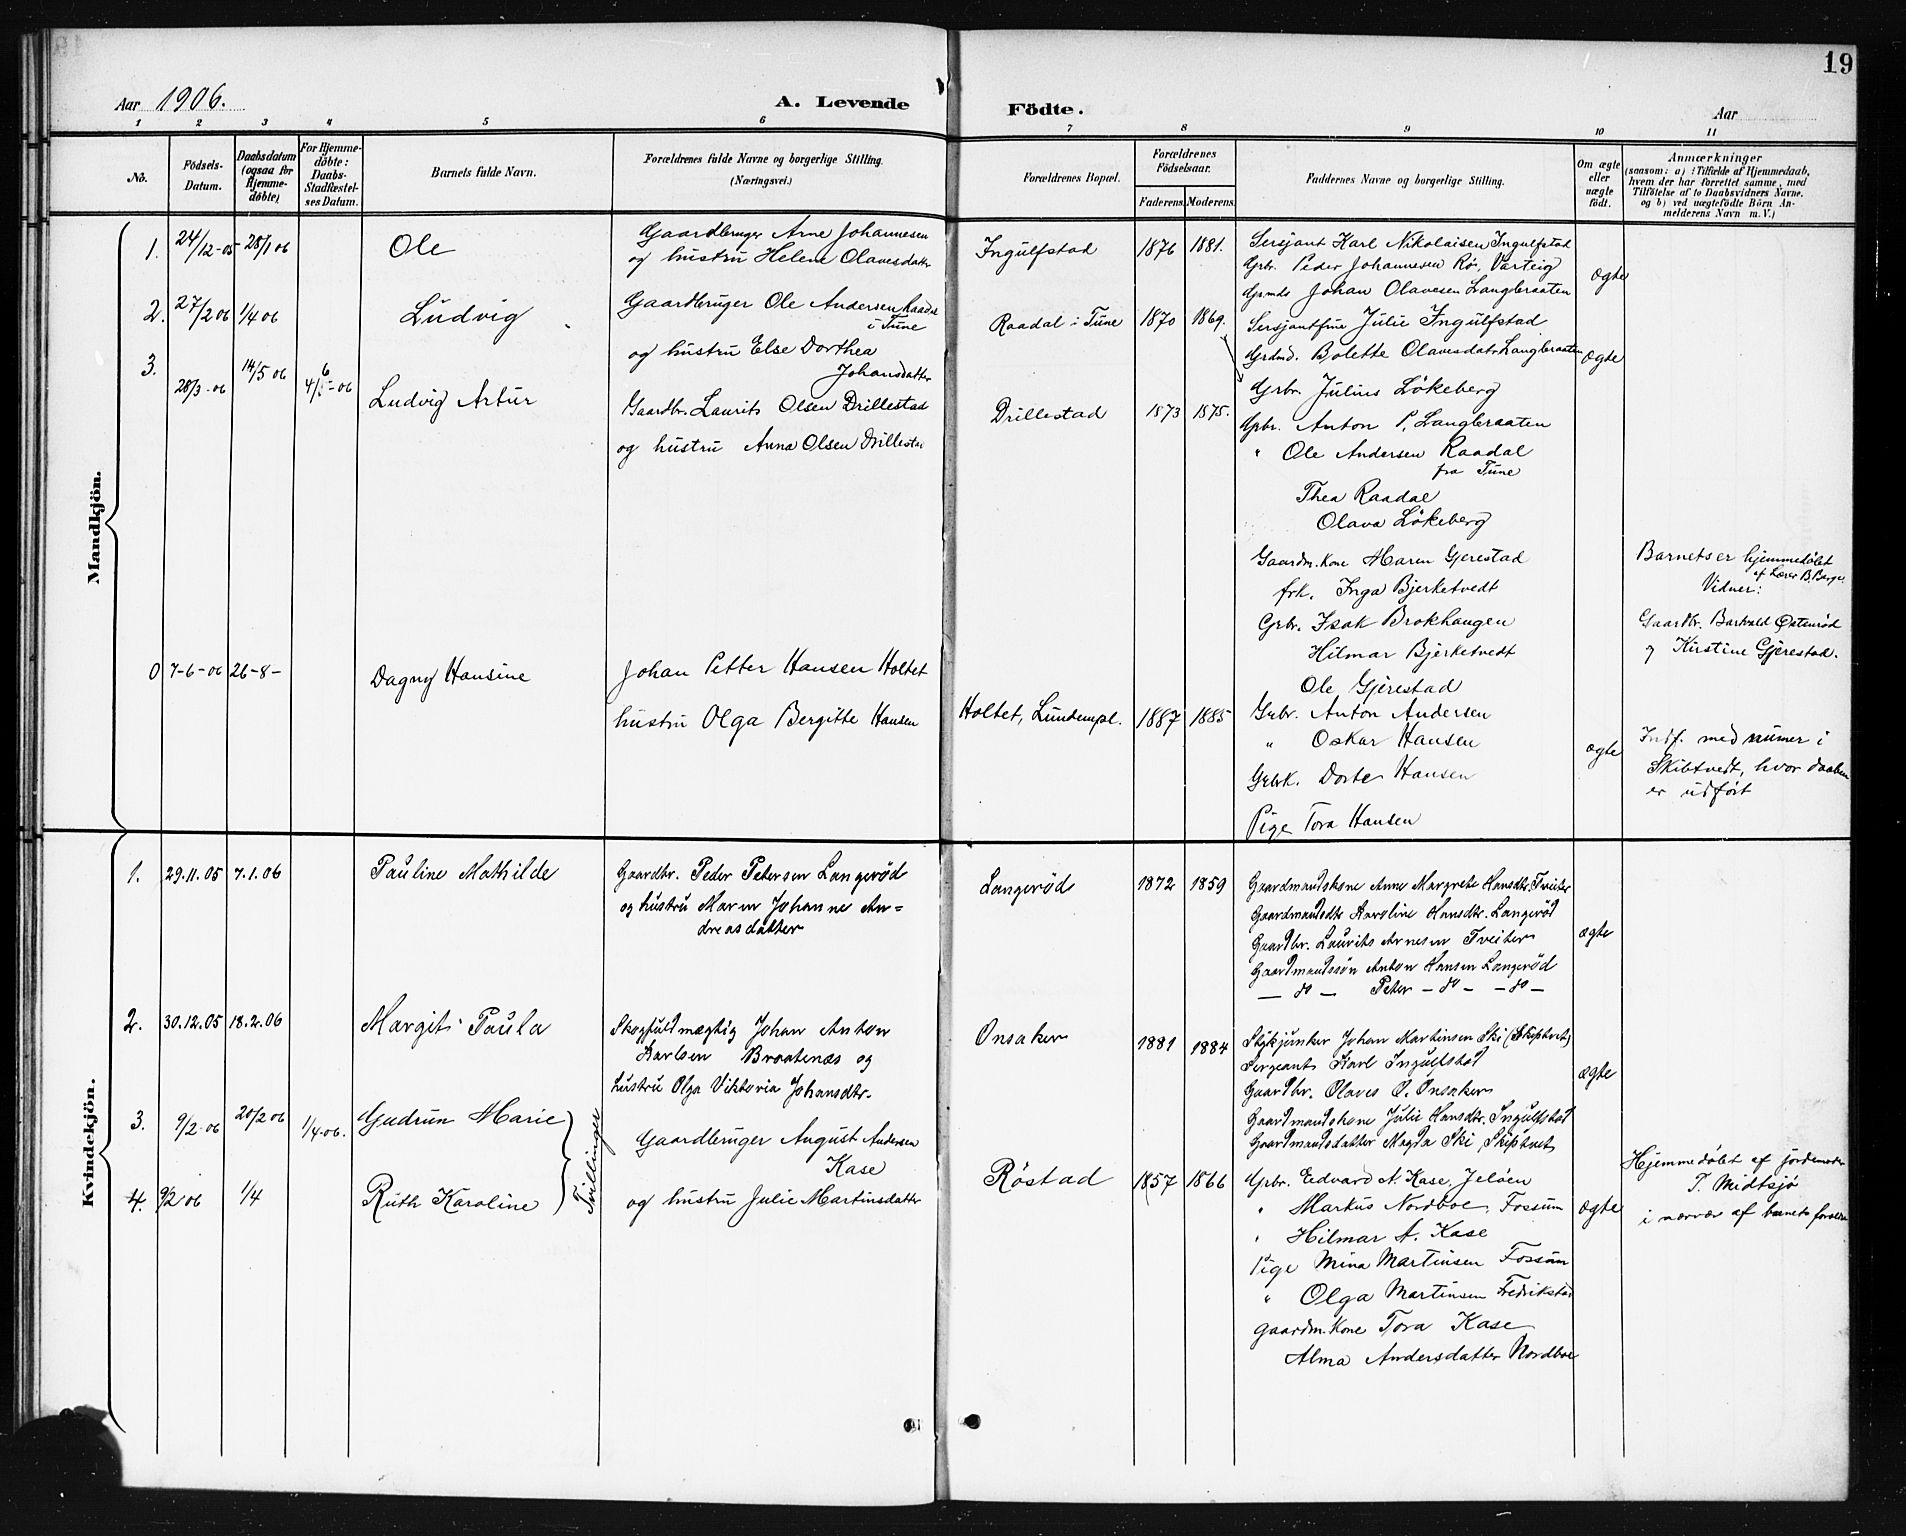 19
Aar 1906.
A. Levende Födte.
Aar
1 2 3 4 5 6 7 8 9 10 11
No.
Födsels-
Datum.
Daabsdatum
(ogsaa for
Hjemme-
døbte)
For Hjemme-
døbte:
Daabs-
Stadfæstel-
ses Datum.
Barnets fulde Navn.
Forældrenes fulde Navne og borgerlige Stilling.
(Næringsvei.)
Forældrenes Bopæl.
Forældrenes
Födselsaar.
Faderens. Moderens.
Faddernes Navne og borgerlige Stilling.
Om ægte
eller
uægte
født.
Anmærkninger
(saasom: a) i Tilfælde af Hjemmedaab,
hvem der har forrettet samme, med
Tilföielse af to Daabsvidners Navne.
og b) ved uægtefödte Börn An-
melderens Navn m. V.)
Mandkjön.
1. 24/12-05 28/1 06 Ole
Gaardbruger Arne Johannesen
og hustru Helene Olavesdatter
Ingulfstad 1876 1881.
Sersjant Karl Nikolaisen Ingulfstad
Grbr. Peder Johannesen Rö, Varteig
Grmds Johan Olavesen Langbraaten
ægte
2. 27/2 06 1/4 06 Ludvig
Gaardbruger Ole Andersen Raadal
i Tune
og hustru Else Dorthea
Johansdatter
Raadal i Tune 1870 1869.
Sersjantfrue Julie Ingulfstad
Grdmd. Bolette Olavesdatr Langbraaten
Grbr. Julius Lökeberg
ægte
3. 28/3-06 14/5 06 4/6-06 Ludvig Artur
Gaardbr. Laurits Olsen Drillestad
og hustru Anna Olsen Drillestad
Drillestad 1873 1875.
Grbr. Anton P. Langbraaten
" Ole Andersen Raadal
fra Tune
Thea Raadal
Olava Lökeberg
Gaardm.kone Maren Gjerestad
frk. Inga Bjerketvedt
Grbr. Isak Brokhaugen
Hilmar Bjerketvedt
Ole Gjerestad
Barnet er hjemmedøbt
af Lærer B. Berge
Vidner:
Gaardbr. Bartvald Østenrød
og Kirstine Gjerestad.
0 7-6-06 26-8- Dagny Hansine
Johan Petter Hansen Holtet
hustru Olga Bergitte Hansen
Holtet, Lundempl. 1887 1885
Grbr. Anton Andersen
" Oskar Hansen
Grbrk. Dorte Hansen
Pige Tora Hansen
ægte
Indf. med numer i
Skibtvedt, hvor daaben
er udført
Kvindekjön.
1. 29.11.05 7.1.06 Pauline Mathilde
Gaardbr. Peder Petersen Langerød
og hustru Maren Johanne An=
dreasdatter
Langerød 1872 1859
Gaardmandskone Anne Margrete Hansdtr. Tveiter
Gaardmandsdtr Karoline Hansdtr. Langerød
Gaardbr. Laurits Arnesen Tveiter
Gaardmandssøn Anton Hansen Langerød
— do — Peter — do — — do —
ægte
2. 30.12.05 18.2.06 Margit Paula
Skogfuldmægtig Johan Anton
Karlsen Braatenæs og
hustru Olga Viktoria Johansdtr.
Onsaker 1881 1884
Stykjunker Johan Martinsen Ski (Skiptvet)
Sergeant Karl Ingulfstad
Gaardbr. Olaves O. Onsaker
Gaardmandskone Julie Hansdtr. Ingulfstad
Gaardmandsdatter Magda Ski, Skiptvet
ægte
3. 9/2-06 20/2 06 1/4-06. Gudrun Marie
4. 9/2 06 1/4 Ruth Karoline
Tvillinger
Gaardbruger August Andersen
Kase
og hustru Julie Martinsdatter
Röstad 1857 1866
Grbr. Edvard A. Kase, Jelöen
" Markus Nordboe, Fossum
" Hilmar A. Kase
Pige Mina Martinsen Fossum
" Olga Martinsen Fredrikstad
Gaardm.kone Tora Kase
Alma Andersdatter Nordboe
ægte
Hjemmedøbt af jordemoder
T. Midtsjø
i nærvær af barnets forældre